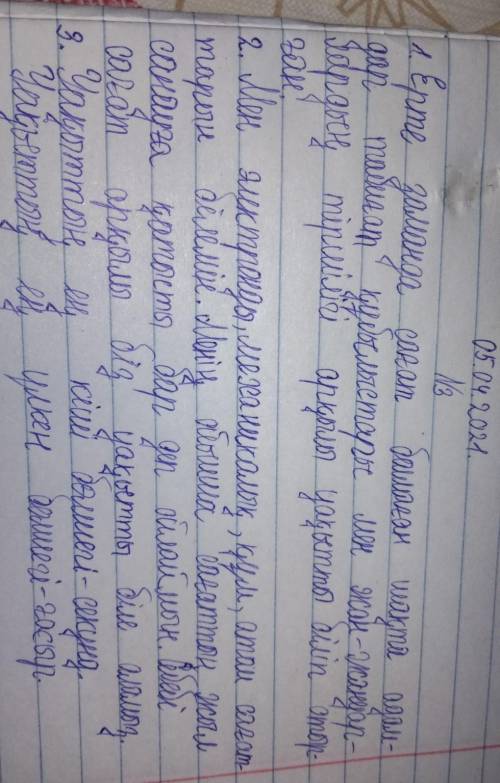 05.04.2021.
№3
1. Ерте заманда сағат болмаған шақта адам-
дар табиғат құбылыстары мен жан-жануар-
лардың тіршілігі арқылы уақытты біліп отыр-
ған.
2. Мен электронды, механикалық, құм, атом сағат-
тарын білемін. Менің ойымша сағаттың жыл
санауға қатысы бар деп ойлаймын. Себебі
сағат арқылы біз уақытты біле аламыз.
3. Уақыттың ең кіші бөлшегі-секунд.
Уақыттың ең үлкен бөлшегі-ғасыр.